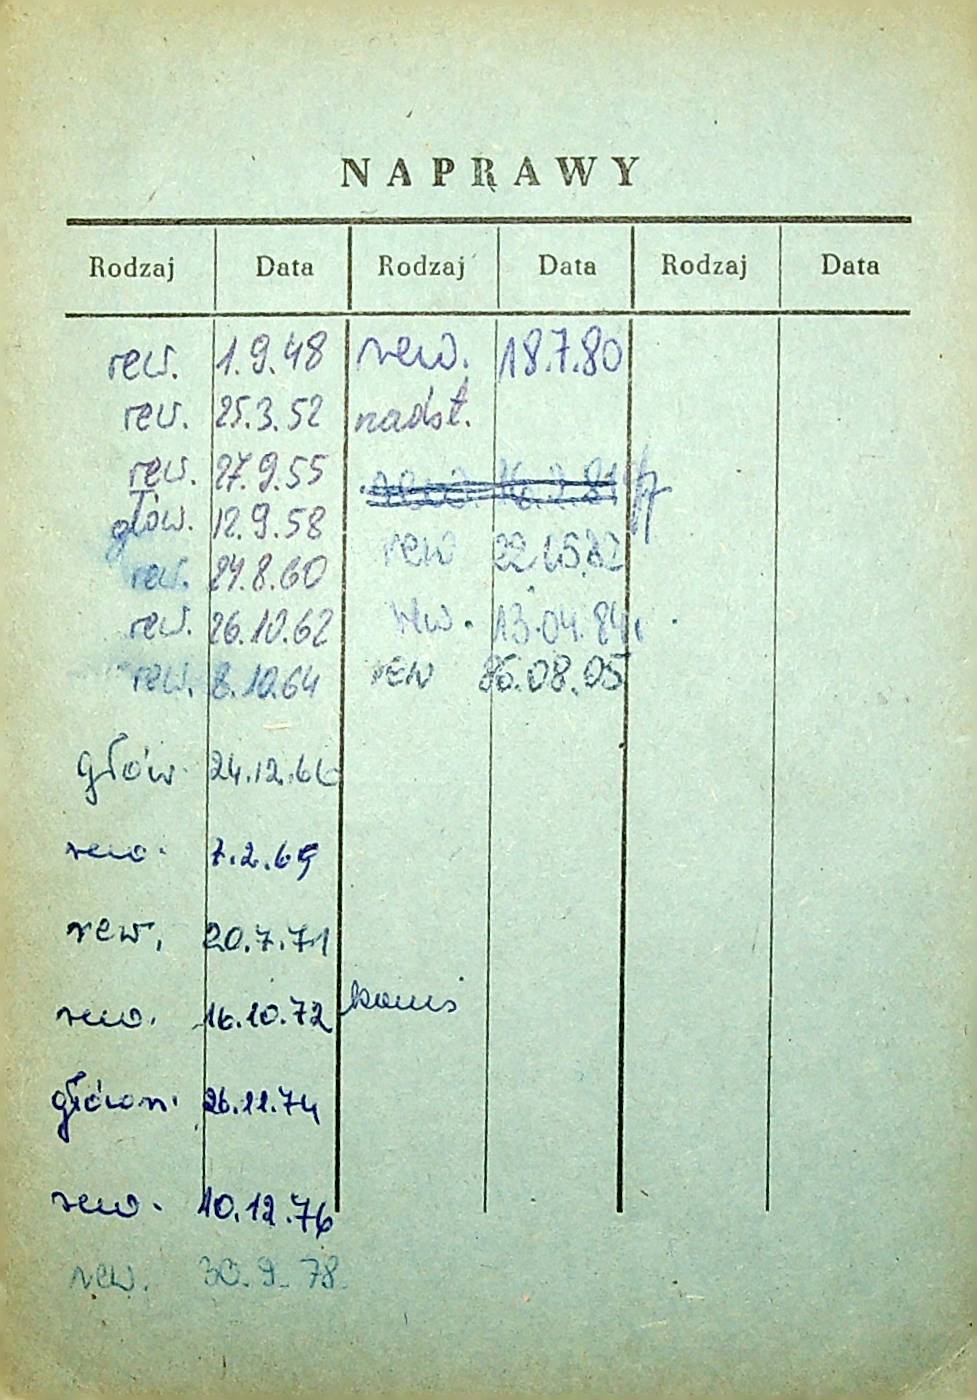 NAPRAWY
Rodzaj Data Rodzaj Data Rodzaj Data
rew. 1.9.48 rew. 18.7.80
rew. 25.3.52 nadst.
rew. 27.9.55
głow. 12.9.58
rew. 24.8.60 rew 22.05.82
rew. 26.10.62 rew. 13.04.84
rew. 8.10.64 rew 86.08.05
głów. 24.12.66
rew. 7.2.69
rew. 20.7.71
rew. 16.10.72
główn. 26.11.74
rew. 10.12.76
rew. 30.9.78